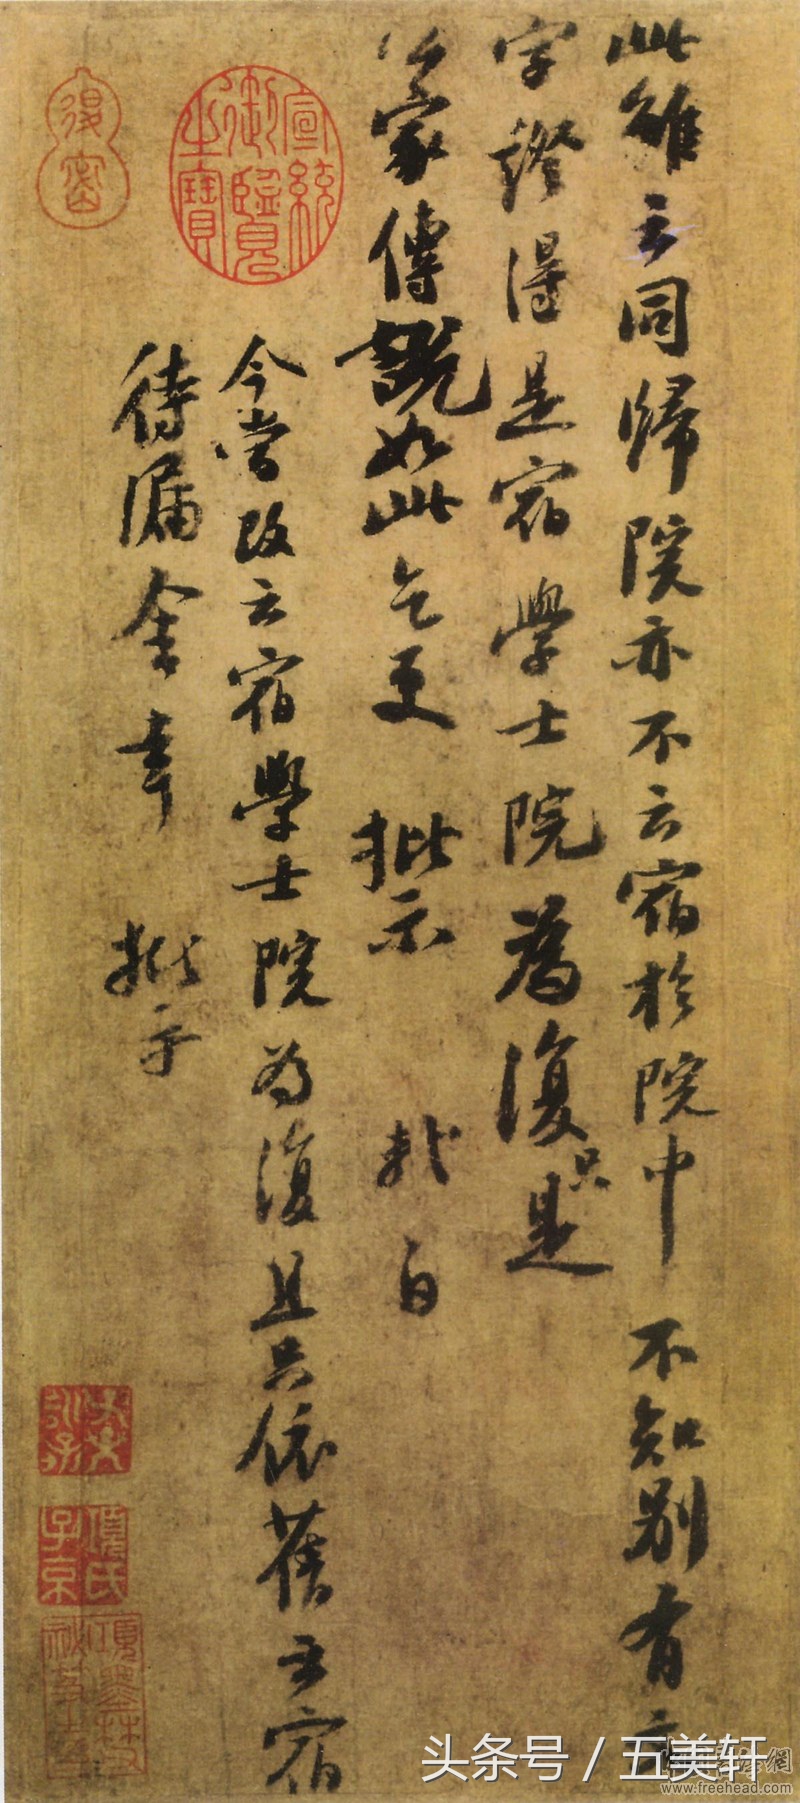 此雖云同歸院亦不云宿於院中不知別有文
字證得是宿學士院為復只是
公家傳說如此乞更 批示 軾白
今當改云宿學士院為復且只依舊云宿
待漏舍幸 批示
宣統御覽之寶
項氏子京
头条号 / 五美轩
www.freehead.com